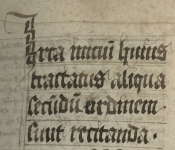 Circa iniciū huius
tractatus aliqua
secūdū ordinem
sunt recitanda.